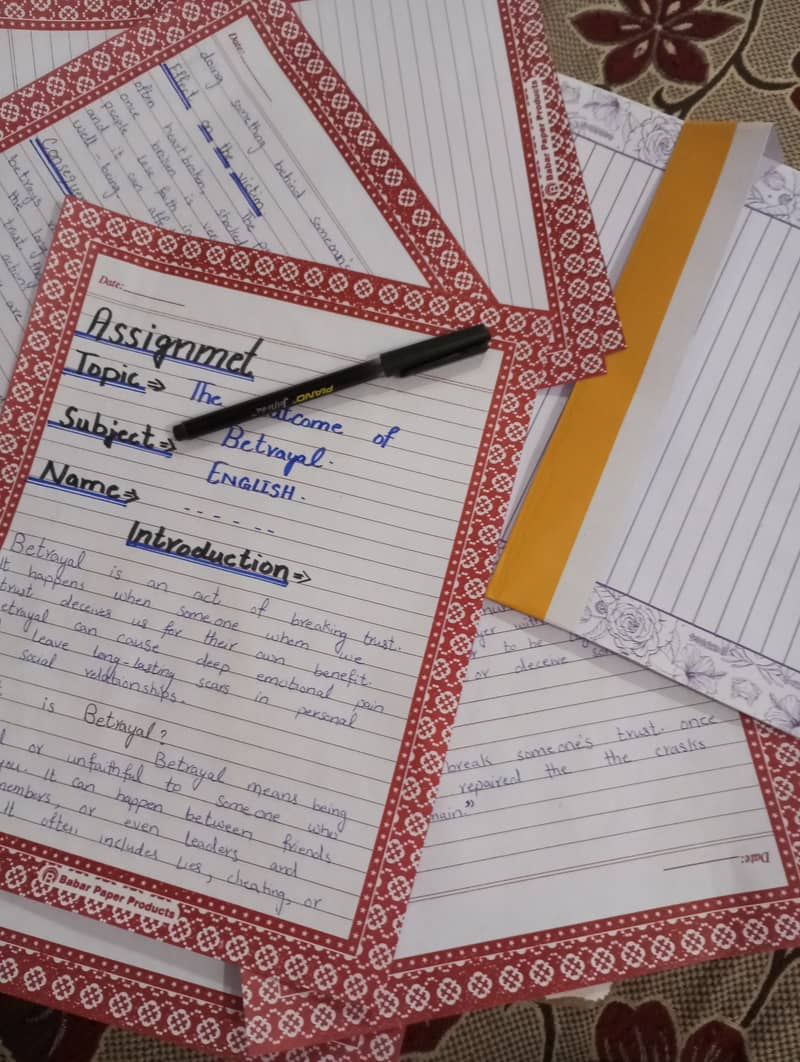 Date:
Assignmet
Topic⇒ The outcome of
Betrayal.
Subject⇒ ENGLISH.
Name⇒ - - - - - -
Introduction⇒
Betrayal is an act of breaking trust.
It happens when someone whom we
trust deceives us for their own benefit.
etrayal can cause deep emotional pain
leave long-lasting scars in personal
social relationships.
is Betrayal?
Betrayal means being
or unfaithful to someone who
you. It can happen between friends
members, or even leaders and
It often includes lies, cheating, or
Babar Paper Products
PIANO
Date:
doing something behind someone's
Effect on the victim
The
often heartbroken, shocked
once broken is ver
people lose faith in
and it can affe
well-being
Conseque
betrays
the
trust
action
are
Babar Paper Products
to be
or deceive
break someone's trust. once
repaired the the crasks
main."
Date: